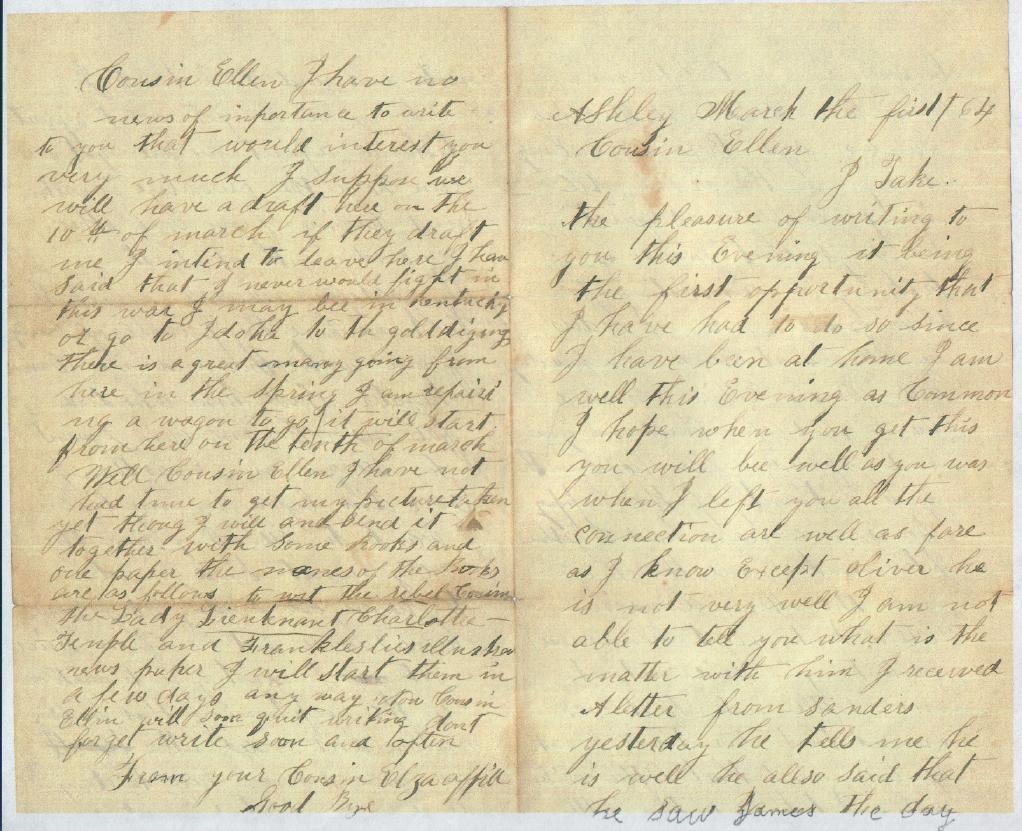 Ashley March the first / 64
Cousin Ellen
I Take.
the pleasure of writing to
you this Evening it being
the first opportunity that
I have had to do so since
I have been at home I am
well this Evening as Common
I hope when you get this
you will bee well as you was
when I left you all the
connection are well as fare
as I know Except oliver he
is not very well I am not
able to tell you what is the
matter with him I received
A letter from sanders
yesterday he tells me he
is well he allso said that
he saw James the day
Cousin Ellen I have no
news of importance to write
to you that would interest you
very much I suppose we
will have a draft here on the
10th of march if they draft
me I intend to leave here I have
said that I never would fight in
this war I may bee in Kentucky
or go to Idoho to th golddiging
there is a great many going from
here in the spring I am repairi
ng a wagon to go / it will start
from here on the tenth of march
Well Cousin Ellen I have not
had time to get my picture taken
yet thoug I will and send it
together with some books and
one paper the names of the books
are as follows to wit the rebel Cousins
the Lady Lieutenant Charlotte
Temple and Frank leslies illustrated
news paper I will start them in
a few days any way Now Cousin
Ellin will som quit writing dont
forget write soon and often
From your Cousin
Good Bye